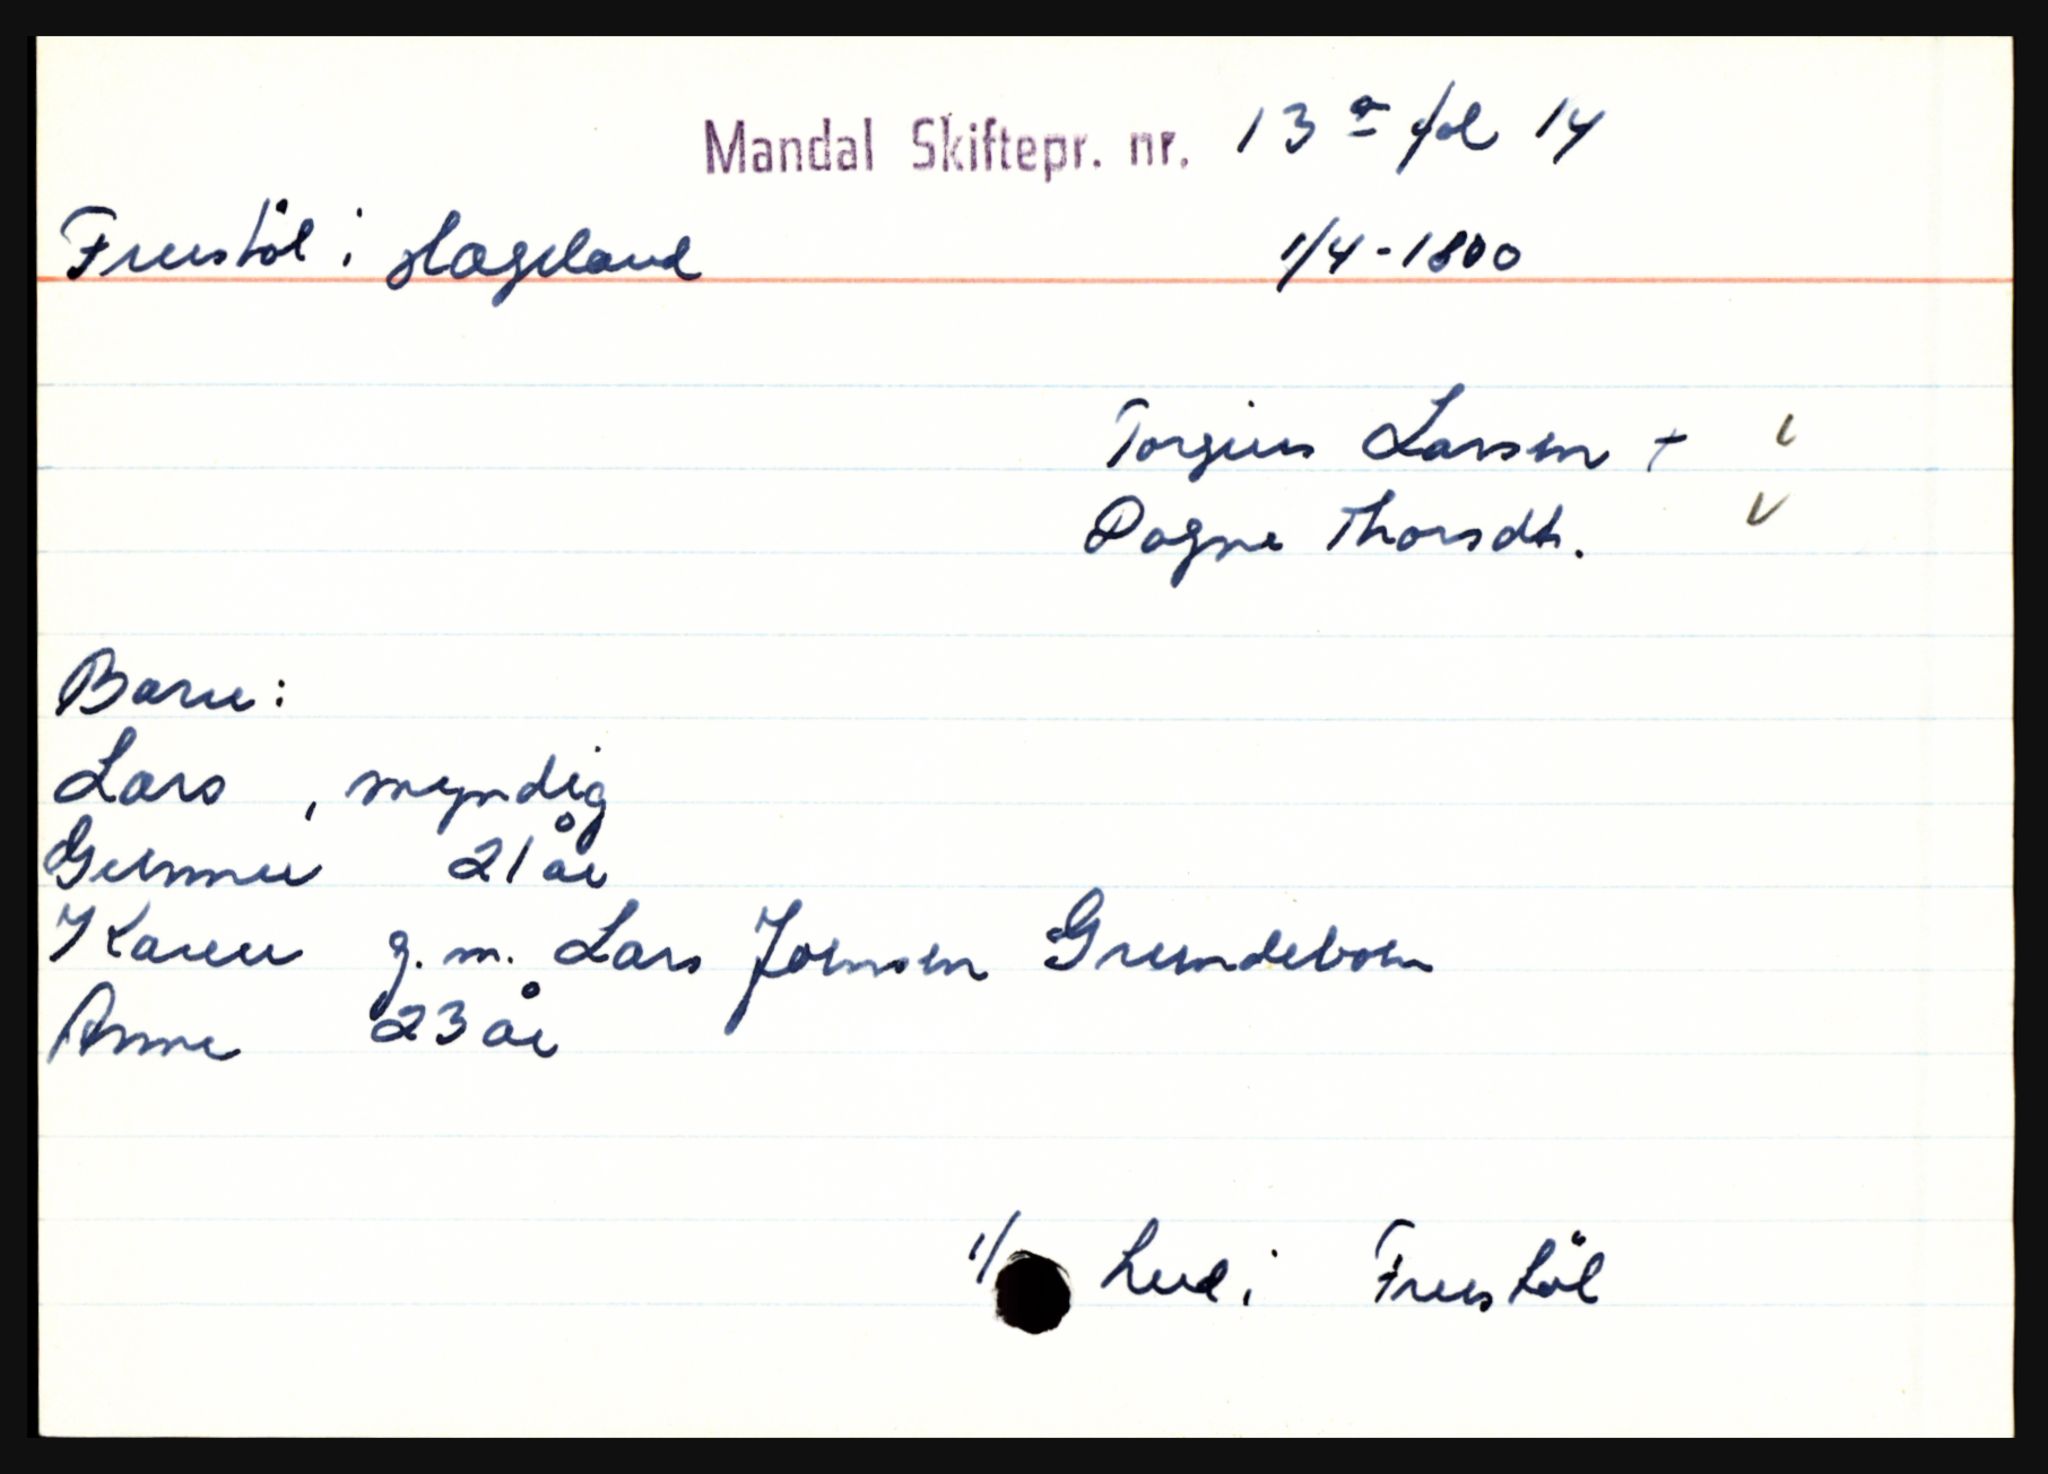 Mandal Skiftepr. nr. 13 a fol 14
Freestöl i Hægeland 1/4-1800
Torgius Larsen +
Dagne Thorsdt.
Barn:
Lars , myndig
Gunner 21 år
Karen g. m. Lars Joensen Grundeboen
Anne 23 år
1/ hud i Freestöl